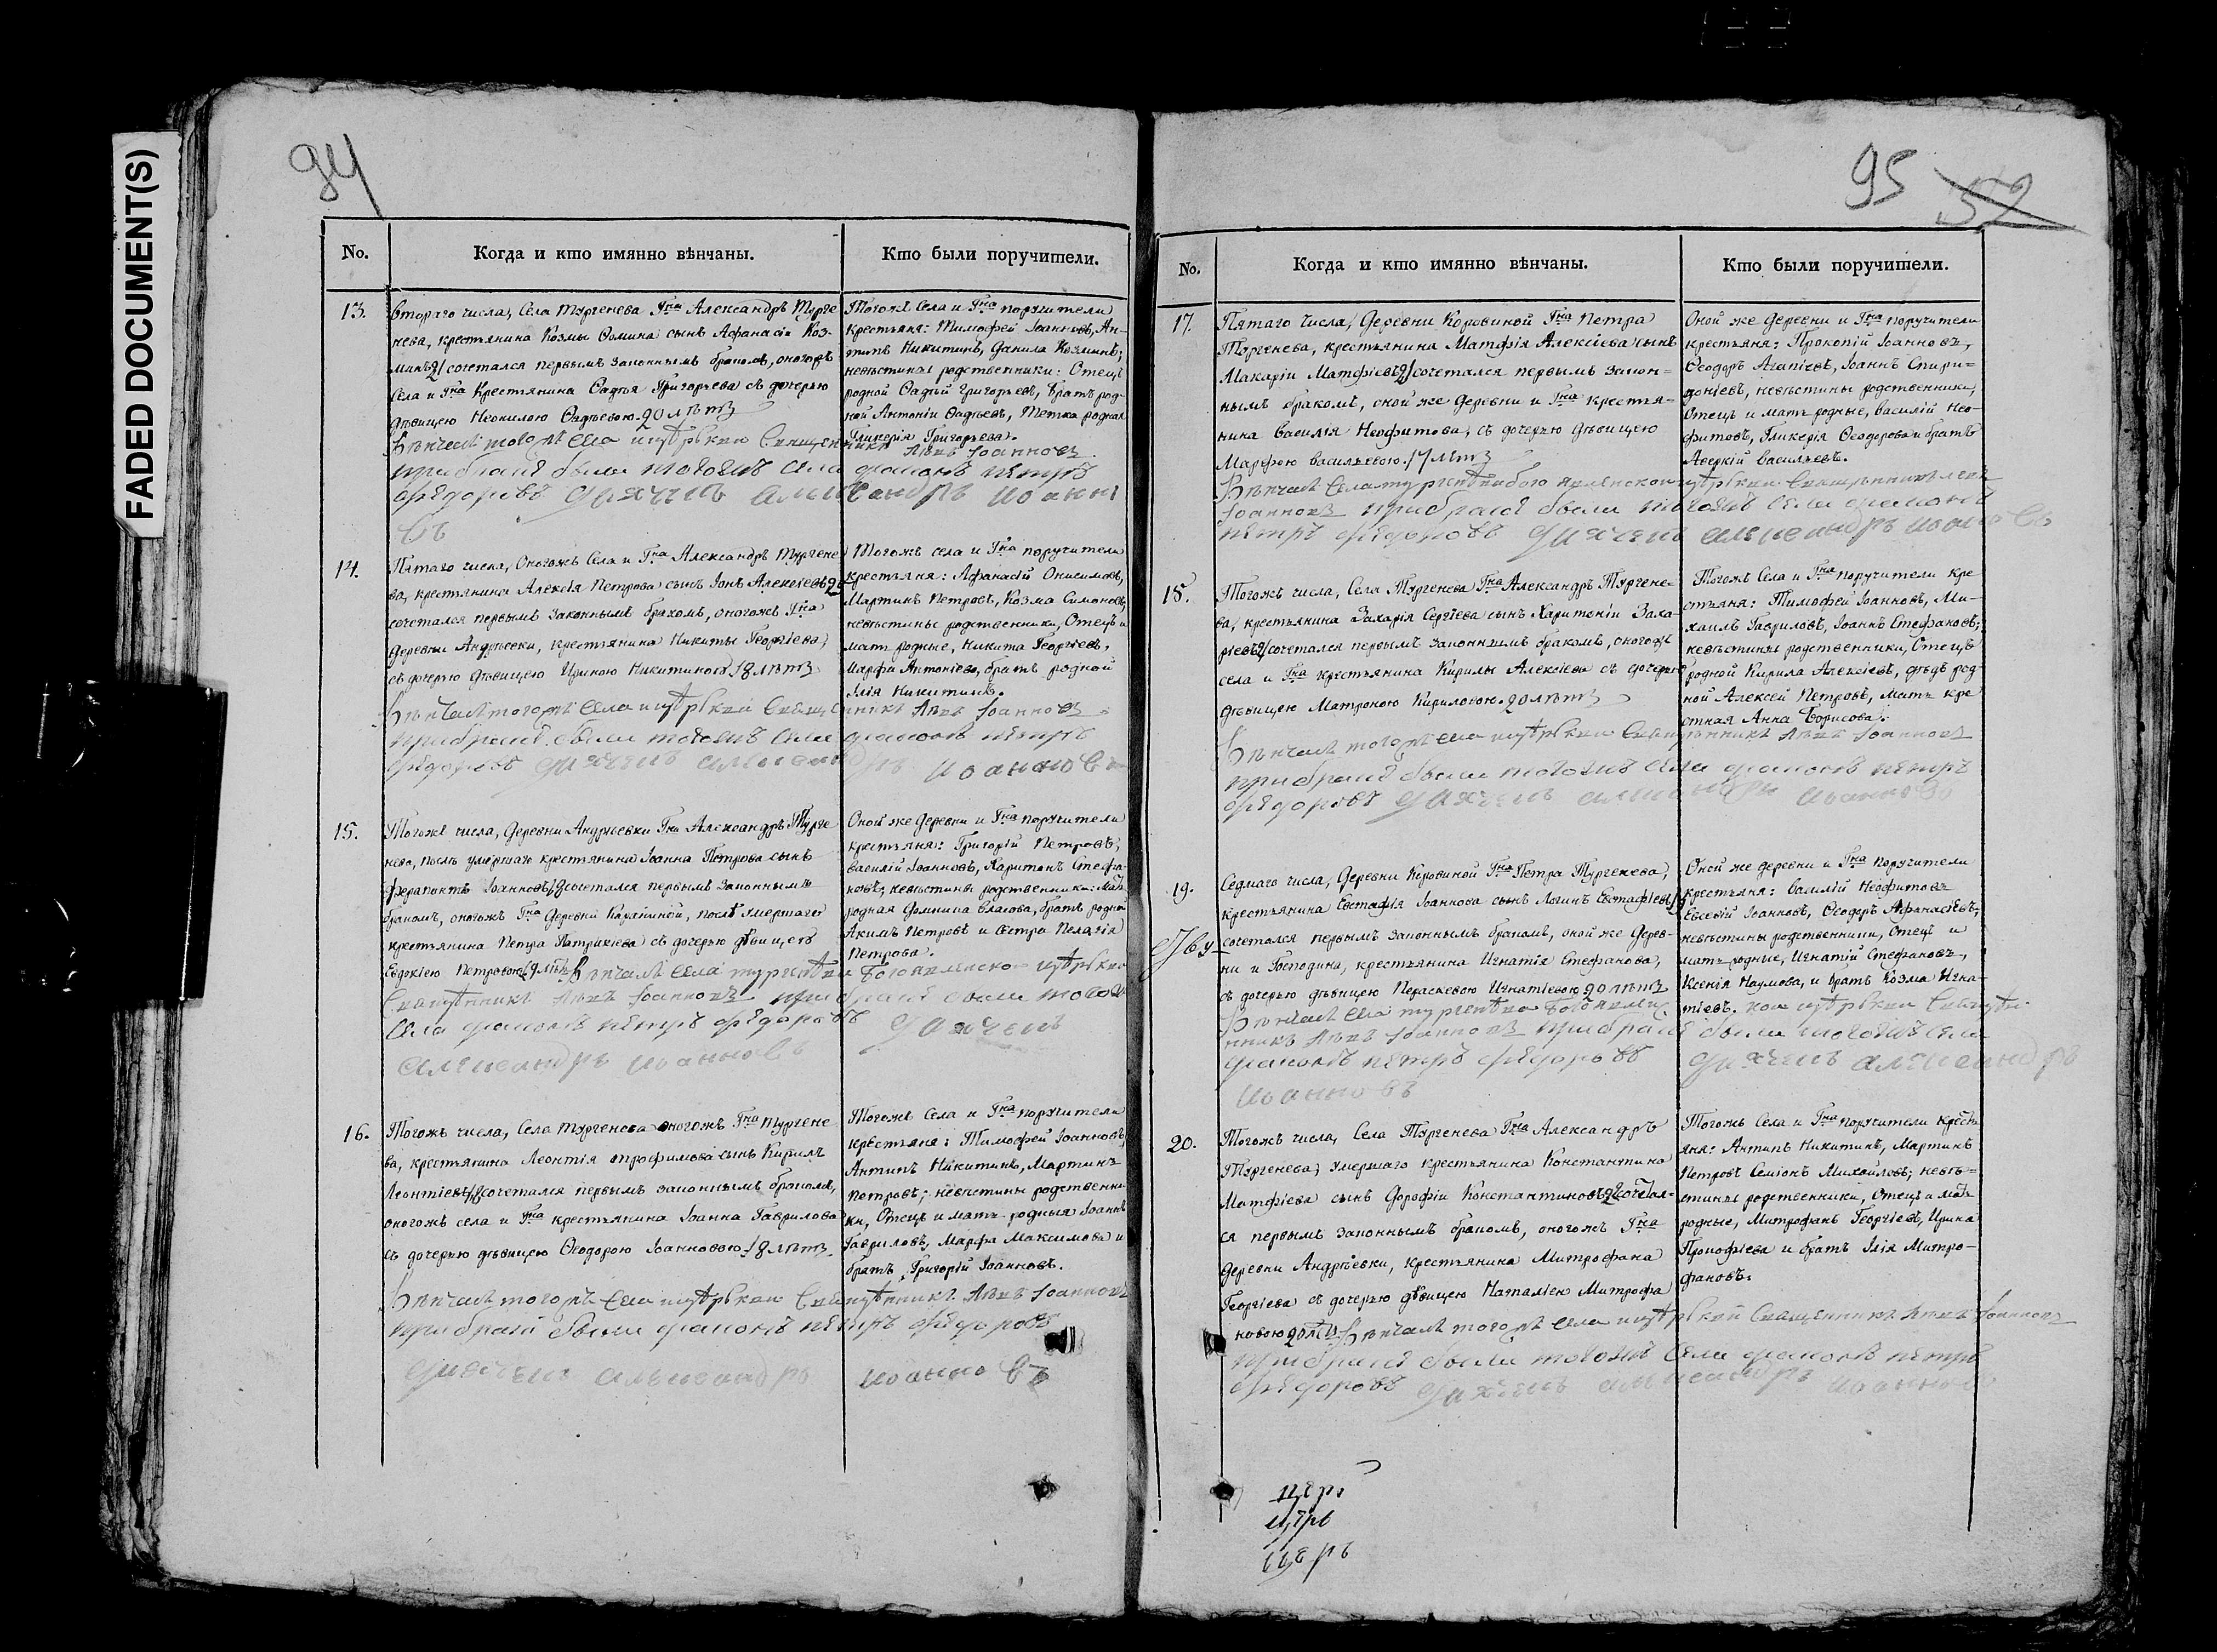 FADED DOCUMENT(S)
94
No.
Когда и кто имянно вѣнчаны.
Кто были поручители.
13.
Втораго числа, Села Тургенева Гна Александръ Турге
нева, крестьянина Козмы Ѳомина сынъ Афанасій Коз-
минъ сочетался первымъ законнымъ бракомъ, оногожъ
Села и Гна Крестьянина Ѳадѣя Григорьева съ дочерью
дѣвицею Неонилою Ѳадѣевою 20 лѣтъ
Вѣнчалъ тогожъ села церькви Священникъ Левъ Іоанновъ
при бракѣ были тогожъ села диаконъ петръ
фѣдоровъ дьячекъ александръ иоанно
въ
Тогожъ Села и Гна поручители
крестьяня: Тимофей Іоанновъ, Ан-
типъ Никитинъ, Данила Козминъ;
невѣстины родственники: Отецъ
родной Ѳадѣй Григорьевъ, Братъ род-
ной Антоній Ѳадѣевъ, Тетка родная
Гликерія Григорьева.
14.
Пятаго числа, Оногожъ Села и Гна Александръ Тургене
ва, крестьянина Алексія Петрова сынъ Іонъ Алексіевъ
сочетался первымъ законнымъ бракомъ, оногожъ Гна
деревни Андрѣевки, крестьянина Никиты Георгіева,
съ дочерью дѣвицею Ириною Никитиною 18 лѣтъ
Вѣнчалъ тогожъ села церькви Священникъ Левъ Іоанновъ
при бракѣ были тогожъ села диаконъ петръ
фѣдоровъ дьячекъ александръ иоанновъ
Тогожъ села и Гна поручители
крестьяня: Афанасій Онисимовъ,
Мартинъ Петровъ, Козма Симоновъ,
невѣстины родственники, Отецъ и
мать родные, Никита Георгіевъ,
Марфа Антоніева, братъ родной
Илія Никитинъ.
15.
Тогожъ числа, деревни Андрѣевки Гна Александръ Турге
нева, послѣ умершаго крестьянина Іоанна Петрова сынъ
Ферапонтъ Іоанновъ сочетался первымъ законнымъ
бракомъ, оногожъ Гна деревни послѣ умершаго
крестьянина Петра Патрикіева съ дочерью дѣвицею
Евдокіею Петровою Вѣнчалъ села тургенева Богоявленской церькви
Священникъ Левъ Іоанновъ при бракѣ были тогожъ
села диаконъ петръ фѣдоровъ дьячекъ
александръ иоанновъ
Оной же деревни и Гна поручители
крестьяня: Григорій Петровъ,
Василій Іоанновъ, Харитонъ Стефа-
новъ; невѣстины родственники: Мать
родная Домнина Власова, братъ родной
Акимъ Петровъ и Сестра Пелагія
Петрова.
16.
Тогожъ числа, Села Тургенева оногожъ Гна Тургене
ва, крестьянина Леонтія Трофимова сынъ Кирилъ
Леонтіевъ сочетался первымъ законнымъ бракомъ,
оногожъ села и Гна крестьянина Іоанна Гаврилова
съ дочерью дѣвицею Ѳеодорою Іоанновою 18 лѣтъ
Вѣнчалъ тогожъ села церькви Священникъ Левъ Іоанновъ
при бракѣ были диаконъ петръ фѣдоровъ
дьячекъ александръ иоанновъ
Тогожъ Села и Гна поручители
крестьяня: Тимофей Іоанновъ,
Антипъ Никитинъ, Мартинъ
Петровъ; невѣстины родственни-
ки, Отецъ и мать родныя Іоаннъ
Гавриловъ, Марфа Максимова и
братъ Григорій Іоанновъ.
95 52
No.
Когда и кто имянно вѣнчаны.
Кто были поручители.
17.
Пятаго числа, Деревни Коровиной Гна Петра
Тургенева, крестьянина Матфія Алексіева сынъ
Макарій Матфіевъ сочетался первымъ закон-
нымъ бракомъ, оной же деревни и Гна крестья-
нина Василія Неофитова, съ дочерью дѣвицею
Марфою Васильевою 17 лѣтъ
Вѣнчалъ Села тургенева богоявленской церькви Священникъ Левъ
Іоанновъ при бракѣ были тогожъ села диаконъ
петръ фѣдоровъ дьячекъ александръ иоанновъ
Оной же деревни и Гна поручители
крестьяня: Прокопій Іоанновъ,
Ѳеодоръ Агапіевъ, Іоаннъ Спири-
доніевъ, невѣстины родственники,
Отецъ и мать родные, Василій Нео-
фитовъ, Гликерія Ѳеодорова и братъ
Аверкій Васильевъ.
18.
Тогожъ числа, Села Тургенева Гна Александръ Тургене-
ва, крестьянина Захарія Сергіева сынъ Харитоній Заха-
ріевъ сочетался первымъ законнымъ бракомъ, оногожъ
села и Гна крестьянина Кирилы Алексіева съ дочерью
дѣвицею Матроною Кириловою 20 лѣтъ
Вѣнчалъ тогожъ села церькви Священникъ Левъ Іоанновъ
при бракѣ были тогожъ села диаконъ петръ
фѣдоровъ дьячекъ александръ иоанновъ
Тогожъ Села и Гна поручители кре
стьяня: Тимофей Іоанновъ, Ми-
хаилъ Гавриловъ, Іоаннъ Стефановъ;
невѣстины родственники, Отецъ
родной Кирила Алексіевъ, дѣдъ род
ной Алексей Петровъ, мать кре
стная Анна Борисова.
19.
Седмаго числа, Деревни Коровиной Гна Петра Тургенева,
крестьянина Евстафія Іоаннова сынъ Логинъ Евстафіевъ
сочетался первымъ законнымъ бракомъ, оной же дерев-
ни и Господина, крестьянина Игнатія Стефанова,
съ дочерью дѣвицею Параскевою Игнатіевою 20 лѣтъ
Вѣнчалъ села тургенева Богоявленс
кой церькви Священ
никъ Левъ Іоанновъ при бракѣ были тогожъ села
диаконъ петръ фѣдоровъ дьячекъ александръ
иоанновъ
Оной же деревни и Гна поручители
крестьяня: Василій Неофитовъ
Евсевій Іоанновъ, Ѳеодоръ Афанасіевъ,
невѣстины родственники, Отецъ и
мать родные, Игнатій Стефановъ,
Ксенія Наумова, и братъ Козма Игна-
тіевъ.
20.
Тогожъ числа, Села Тургенева Гна Александръ
Тургенева, умершаго крестьянина Константина
Матфіева сынъ Дорофій Константиновъ сочетал-
ся первымъ законнымъ бракомъ, оногожъ Гна
деревни Андрѣевки, крестьянина Митрофана
Георгіева съ дочерью дѣвицею Наталіею Митрофа
новою 20 лѣтъ Вѣнчалъ тогожъ села церькви Священникъ Левъ Іоанновъ
при бракѣ были тогожъ села диаконъ петръ
фѣдоровъ дьячекъ александръ иоанновъ
Тогожъ Села и Гна поручители кресть
яня: Антипъ Никитинъ, Мартинъ
Петровъ Семіонъ Михайловъ; невѣ-
стины родственники, Отецъ и мать
родные, Митрофанъ Георгіевъ, Ирина
Прокофіева и братъ Илія Митро-
фановъ.